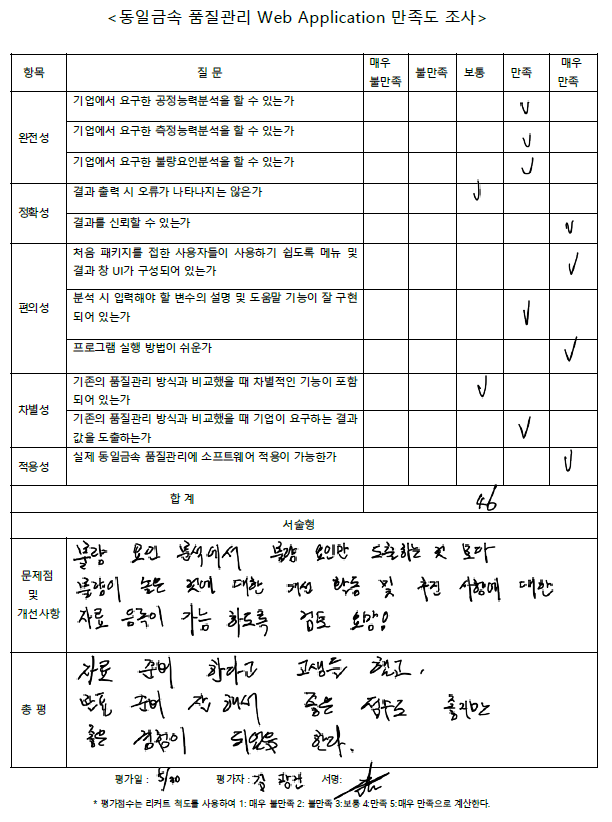 <동일금속 품질관리 Web Application 만족도 조사>
항목 질 문 매우 불만족 불만족 보통 만족 매우 만족
완전성
기업에서 요구한 공정능력분석을 할 수 있는가 ✓
기업에서 요구한 측정능력분석을 할 수 있는가 ✓
기업에서 요구한 불량요인분석을 할 수 있는가 ✓
정확성
결과 출력 시 오류가 나타나지는 않은가 ✓
결과를 신뢰할 수 있는가 ✓
편의성
처음 패키지를 접한 사용자들이 사용하기 쉽도록 메뉴 및
결과 창 UI가 구성되어 있는가 ✓
분석 시 입력해야 할 변수의 설명 및 도움말 기능이 잘 구현
되어 있는가 ✓
프로그램 실행 방법이 쉬운가 ✓
차별성
기존의 품질관리 방식과 비교했을 때 차별적인 기능이 포함
되어 있는가 ✓
기존의 품질관리 방식과 비교했을 때 기업이 요구하는 결과
값을 도출하는가 ✓
적용성
실제 동일금속 품질관리에 소프트웨어 적용이 가능한가 ✓
합 계 46
서술형
문제점
및
개선사항
불량 요인 분석에서 불량 요인만 도출하는 것 보다
불량이 높은 것에 대한 개선 활동 및 추진 사항에 대한
자료 등록이 가능 하도록 검토 요망
총 평
자료 준비 한다고 고생들 했고,
발표 준비 잘 해서 좋은 점수도 좋지만
좋은 경험이 되었음 한다.
평가일 : 5/30 평가자 : 서명:
* 평가점수는 리커트 척도를 사용하여 1: 매우 불만족 2: 불만족 3:보통 4:만족 5:매우 만족으로 계산한다.